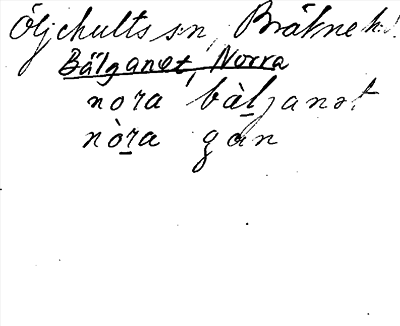 Öljehults sn, Bräkne hd.
Bälganet, Norra
nora bàḻjanət
nòṟa gan